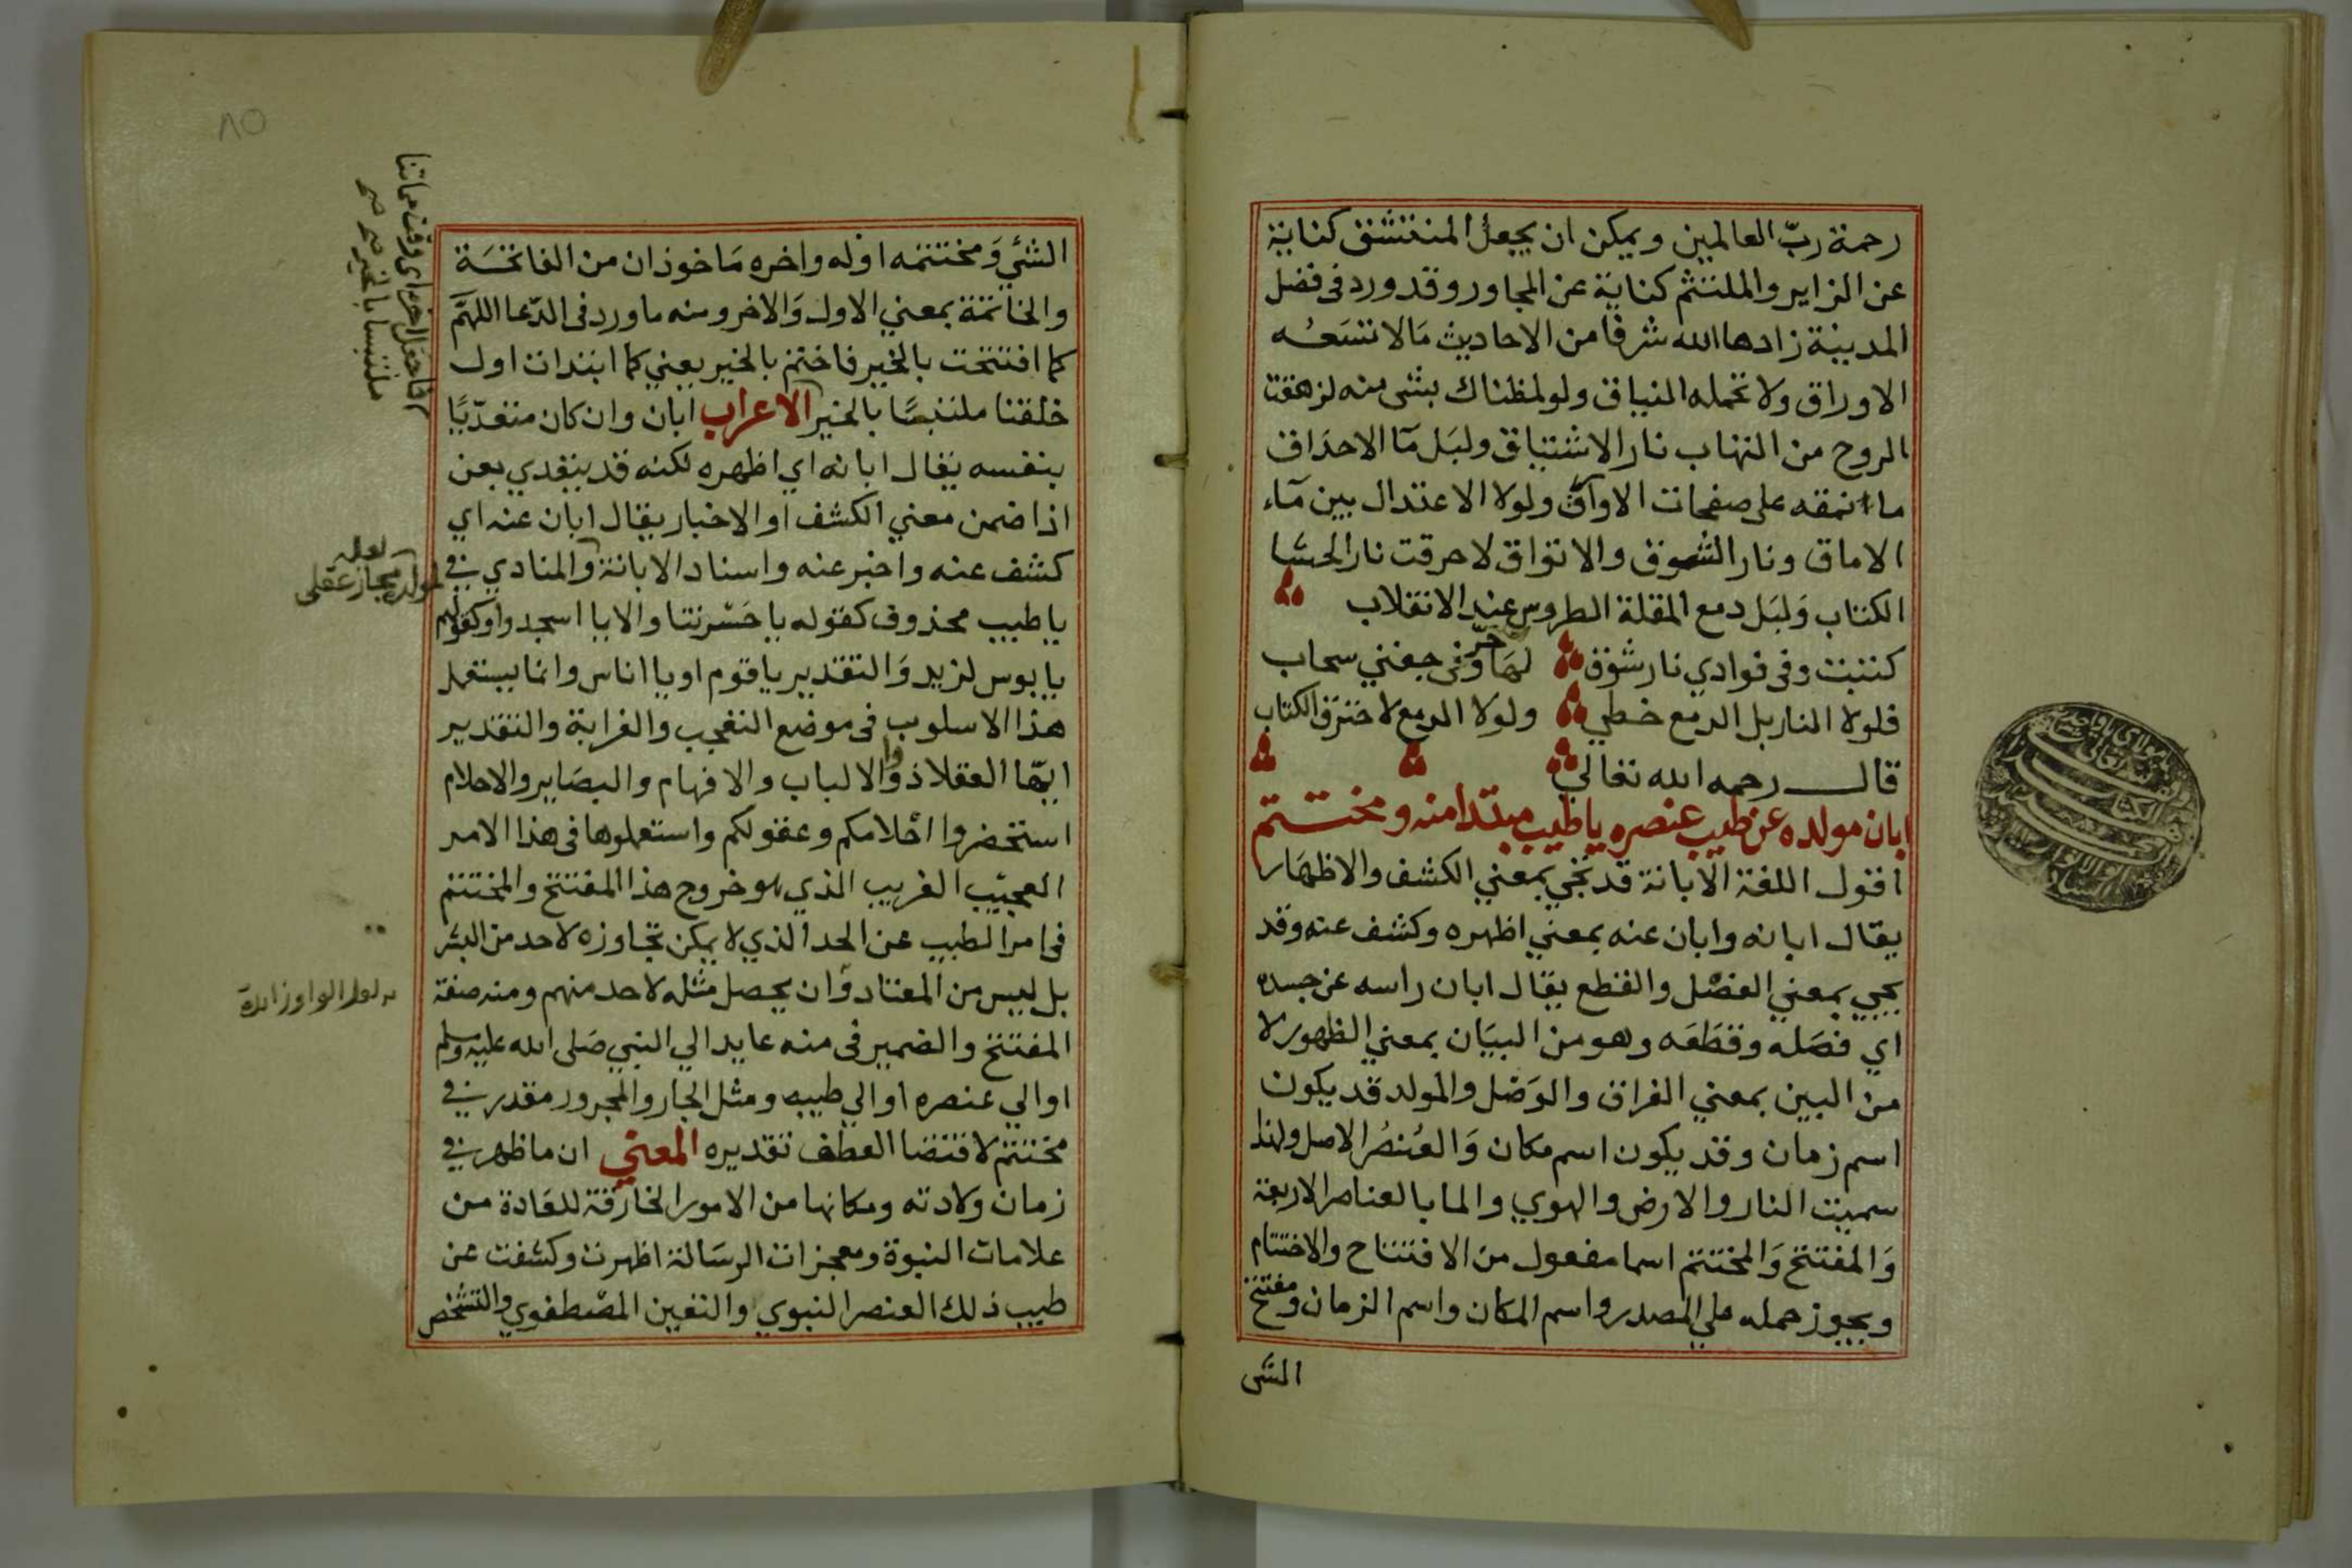 رحمة ربّ العالمين ويمكن ان يجعل المنتشق كناية
عن الزاير والملتثم كناية عن المجاور وقد ورد فى فضل
المدينة زادها الله شرفا من الاحاديث مَالا تسَعُه
الاوراق ولا تحمله النياق ولو لمظناك بشى منه لزهقت
الروح من التهاب نار الاشتياق ولبَل مآ الاحدَاق
ما انمقه على صفحات الاوآق ولولا الاعتدال بين مآء
الاماق ونار الشوق والاتواق لاحرقت نار الحشا
الكتاب وَلبَل دمع المقلة الطروس عند الانقلاب
كتبت وفى فوادي نار شوق لهَا حرّ وفى جفني سحاب
فلولا النار بل الدمع خطي ولولا الدمع لاحترق الكتاب
قال رحمه الله تعالي
ابان مولده عن طيب عنصره يا طيب مبتدا منه ومختتم
اقول اللغة الابانة قد تجي بمعني الكشف والاظهَار
يقال ابانه وابان عنه بمعني اظهره وكشف عنه وقد
يجي بمعني الفصْل والقطع يقال ابان راسه عن جسده
اي فصَله وقطَعَه وهو من البيَان بمعني الظهور لا
من البين بمعني الفراق والوَصْل والمولد قد يكون
اسم زمان وقد يكون اسم مكان وَالعُنصُر الاصل ولهذا
سميت النار والارض والهوي والما بالعناصر الاربعة
وَالمفتتح وَالمختتم اسما مفعول من الافتتاح والاختتام
ويجوز حمله علي المصدر واسم المكان واسم الزمان ومفتتح
الشى
٨٥
الشئي وَمختتمه اوله واخره مَاخوذان من الفاتحَة
والخاتمَة بمعني الاول وَالاخر ومنه ما ورد فى الدّعا اللهمَّ
كما افتتحت بالخير فاختم بالخير يعني كما ابتدات اول
خلقنا ملتبسًا بالخير الاعراب ابان وان كان متعدّيًا
بنفسه يقال ابانه اي اظهره لكنه قد يتعدي بعن
اذا ضمن معني الكشف او الاخبار يقال ابان عنه اي
كشف عنه واخبر عنه واسناد الابانة والمنادي في
يا طيب محذوف كقوله يا حَسْرتنا والايا اسجدوا وكقولهم
يا بوس لزيد وَالتقدير يا قوم او يا اناس وانما يستعمل
هذا الاسلوب فى موضع التعجب والغرابة والتقدير
ايّها العقلا ذووا الالباب والافهام والبصَاير والاحلام
استحضروا احْلامكم وعقولكم واستعملوها فى هذا الامر
العجيب الغريب الذي هو خروج هذا المفتتح والمختتم
فى امر الطيب عن الحد الذي لا يمكن تجاوزه لاحد من البشر
بل ليس من المعتاد وَان يحصل مثله لاحد منهم ومنه صفة
المفتتح والضمير فى منه عايد الي النبي صَلى الله عليه وسلم
او الي عنصره او الي طيبه ومثل الجار والمجرور مقدر في
مختتم لاقتضا العطف تقديره المعني ان ما ظهر في
زمان ولادته ومكانها من الامور الخارقة للعَادة من
علامات النبوة ومعجزات الرسَالة اظهرت وكشفت عن
طيب ذلك العنصر النبوي والتعين المصْطفوي والتشخص
فاجعل اخره اى وقت مماتنا
ملتبسا بالخير صح صح
لعله
لمولده مجاز عقلى
لعل الواو زائدة